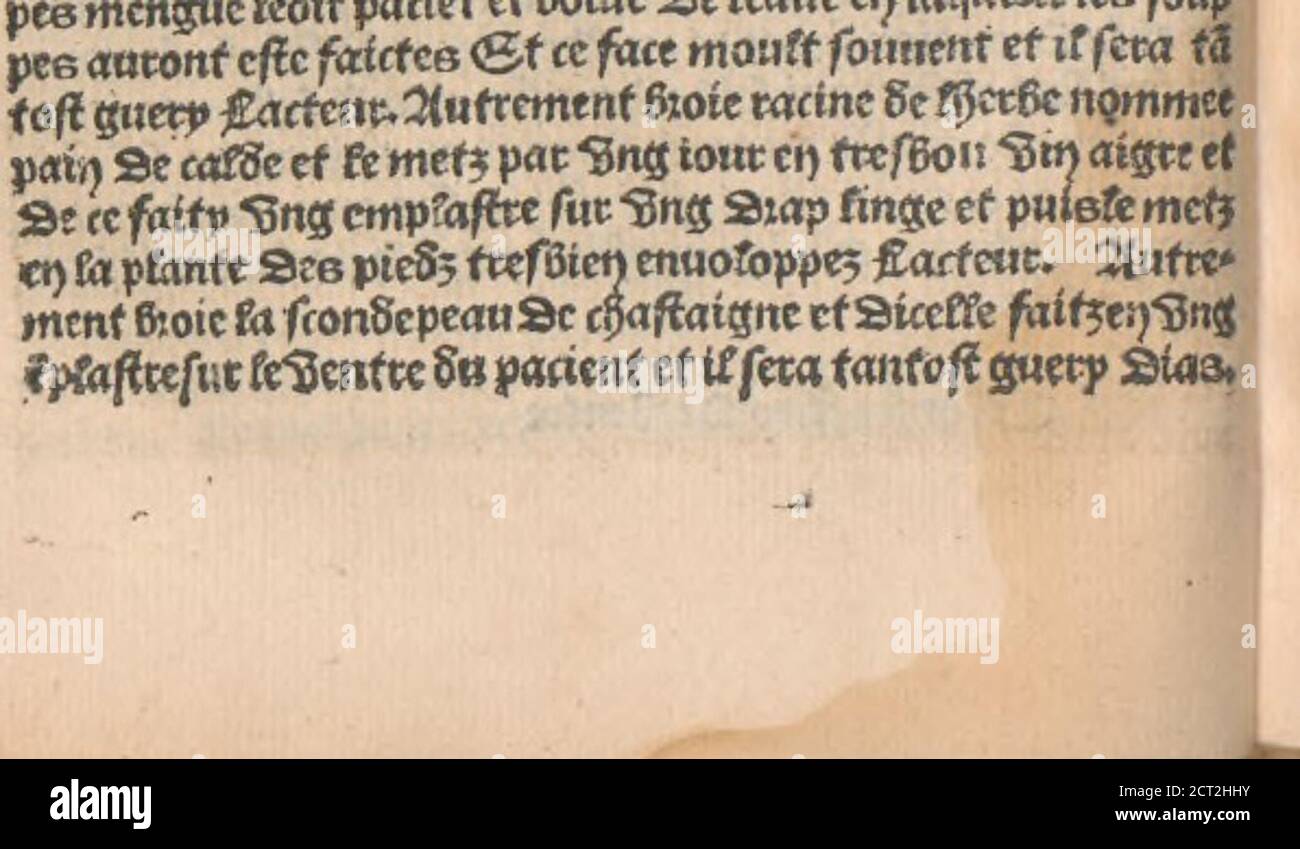 pes mengue ledit pacient et boiue de leaue en laquelle les soup
pes auront este faictes Et ce face moult souuent et il sera tã
tost guery Lacteur. Autrement broie racine de lherbe nommee
pain de calde et le metz par vng iour en tresbon vin aigre et
de ce faity vng emplastre sur vng drap linge et puis le metz
en la plante des piedz tresbien enuoloppez Lacteur. Autre-
ment broie la scondepeau de chastaigne et dicelle faitzen vng
ẽplastre sur le ventre du pacient et il sera tantost guery Dias.
alamy
Image ID: 2CT2HHY
www.alamy.com